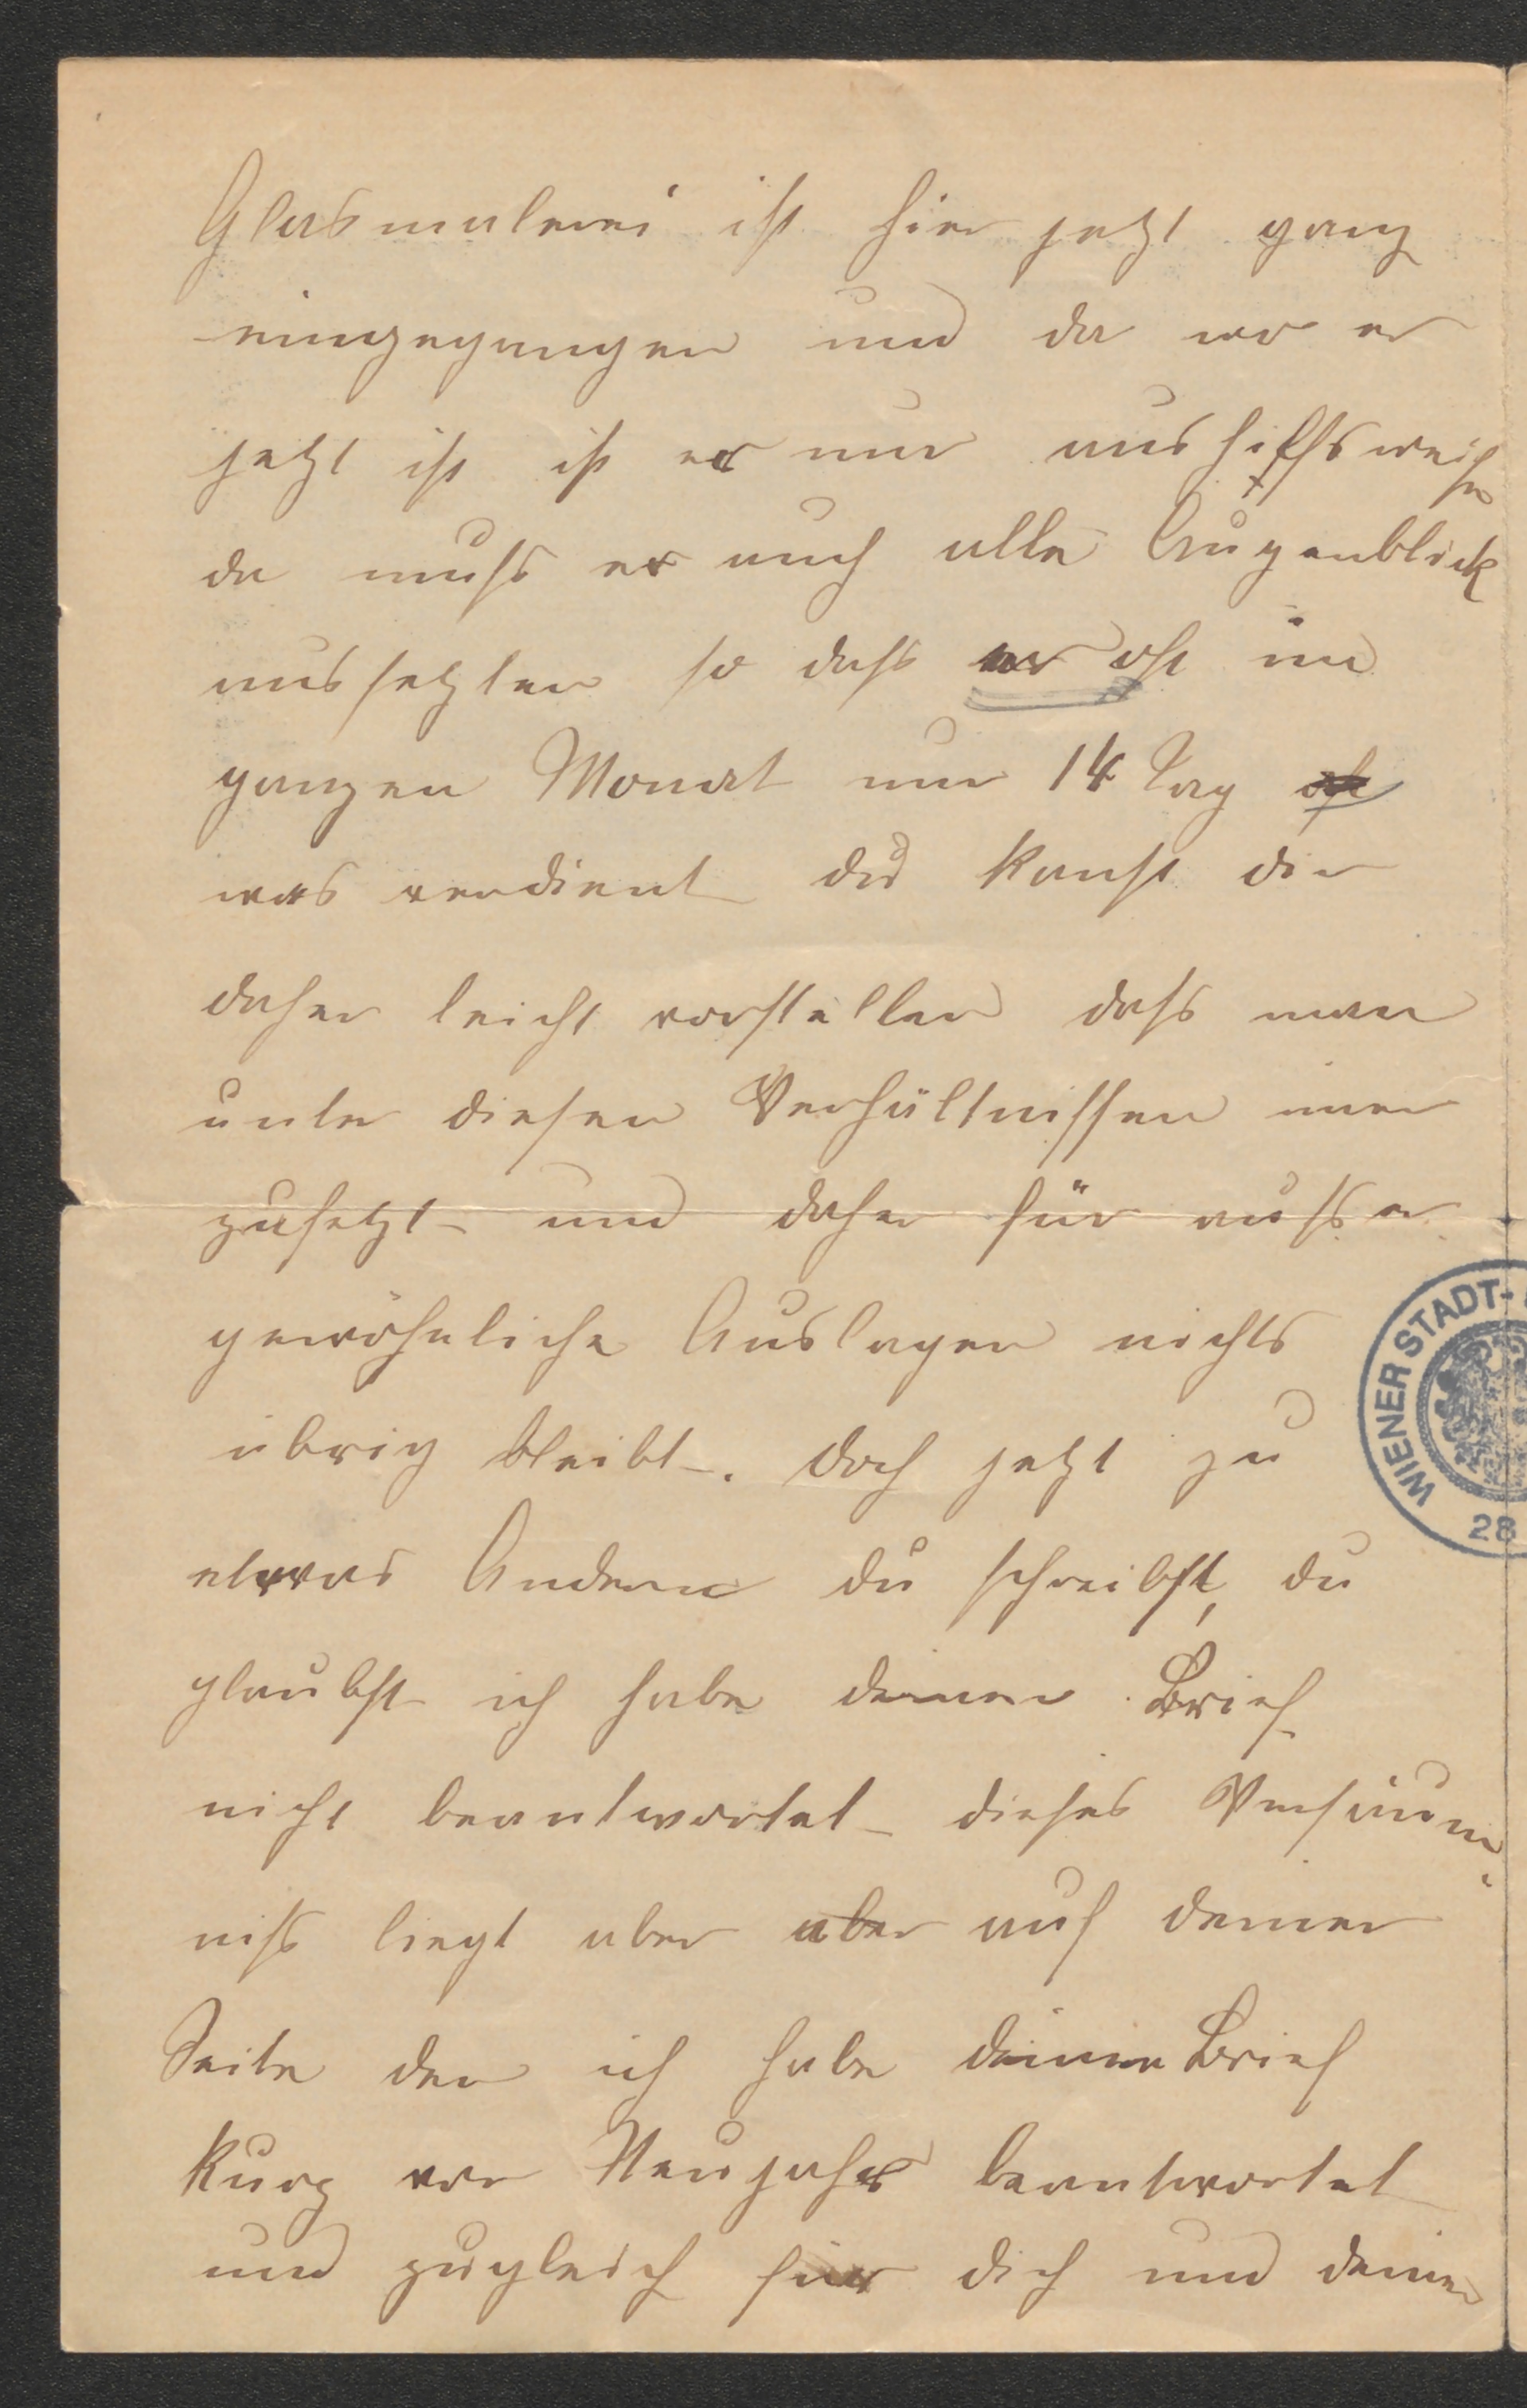 Glasmalerei ist hier jetzt ganz
eingegangen und da wo er
jetzt ist ist er nur aushilfsweise
da muss er auch alle Augenblick
aussetzten so dass er oft im
ganzen Monat nur 14 Tag
was verdient du kanst dir
daher leicht vorstellen dass man
unter diesen Verhältnissen imer
zusetzt und daher für ausser
gewöhnliche Auslagen nichts
übrig bleibt. doch jetzt zu
etwas Andern du schreibst, du
glaubst ich habe deinen Brief
nicht beantwortet dieses Versäum
niss liegt aber aber auf deiner
Seite den ich habe deinen Brief
kurz vor Neujahr beantwortet
und zugleich für dich und deinen
WIENER STADT-
28